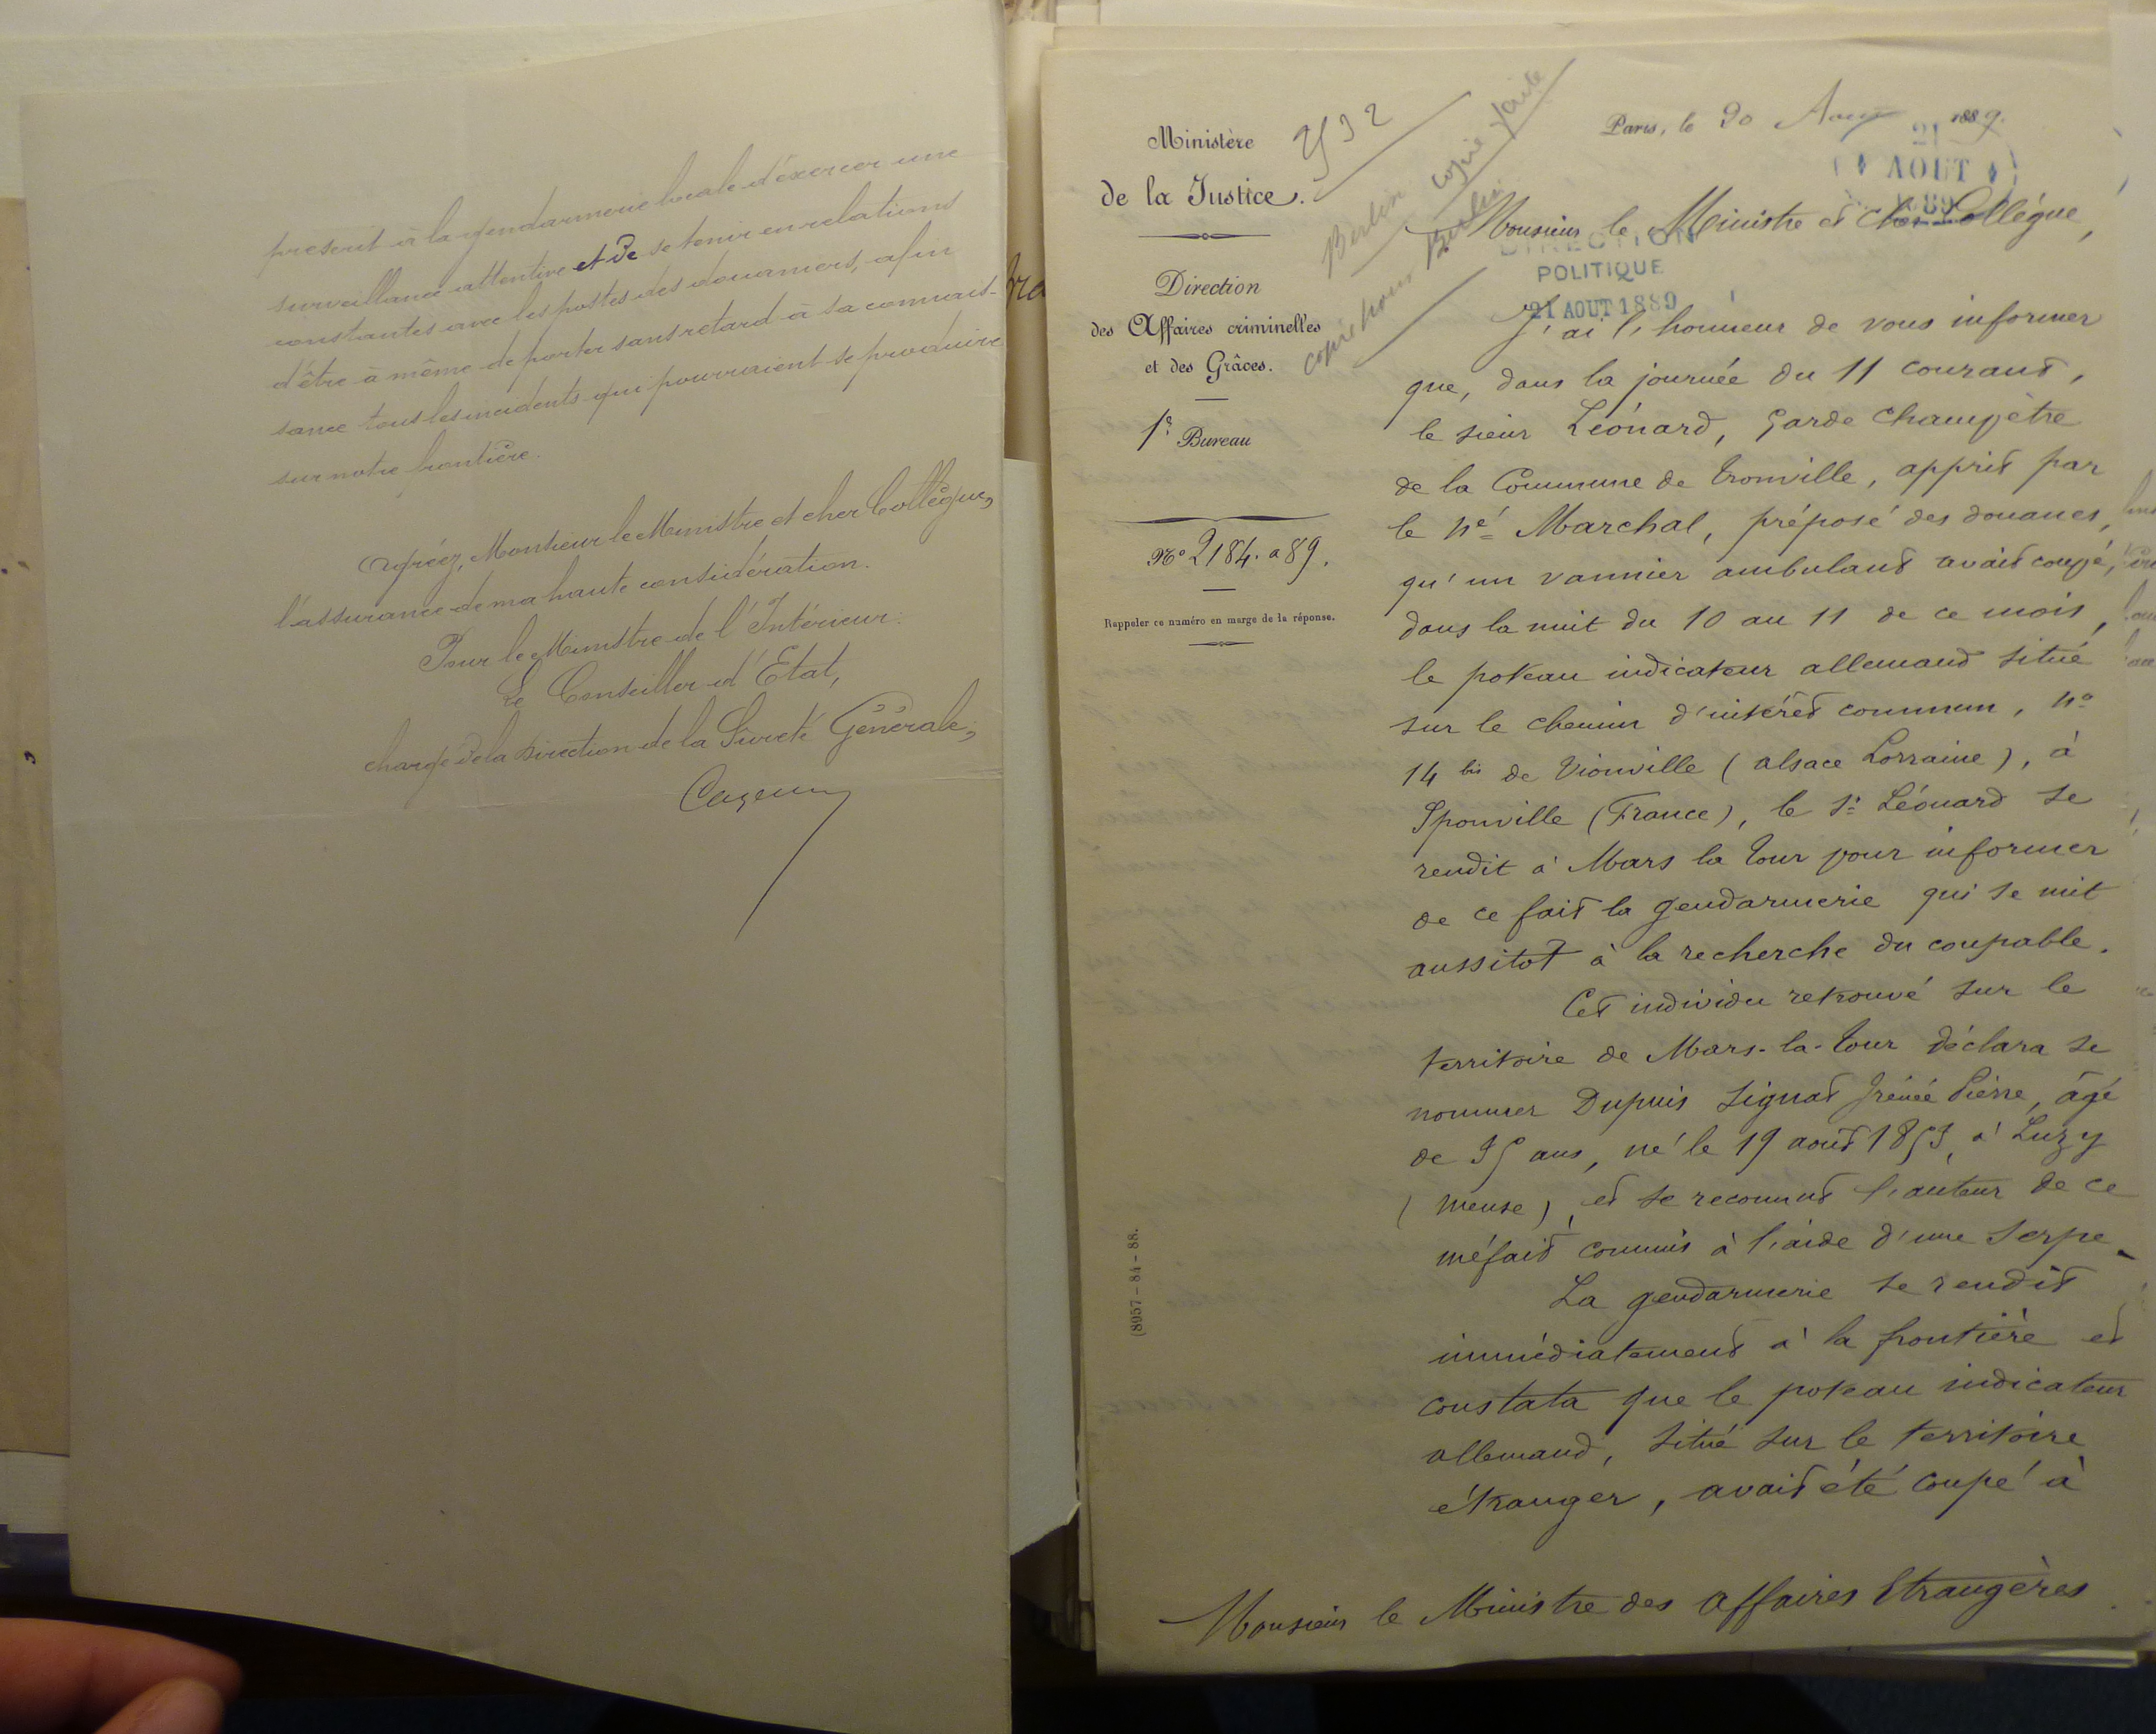 prescrit à la gendarmerie locale d'exercer une
surveillance attentive et de se tenir en relations
constantes avec les postes des douaniers, afin
d'être à même de porter sans retard à sa connais-
sance tous les incidents qui pourraient se produire
sur notre frontière.
Agréez, Monsieur le Ministre et cher Collègue,
l'assurance de ma haute considération.
Pour le Ministre de l'Intérieur:
Le Conseiller d'Etat,
chargé de la Direction de la Sûreté Générale,
Ministère
de la Justice.
Direction
des Affaires criminelles
et des Grâces.
1er Bureau
No 2184. a 89.
Rappeler ce numéro en marge de la réponse.
(8957-84-88.
Berlin
copie faite
copie pour Berlin
Paris, le 20 Août 1889.
21
AOUT
1889
Monsieur le Ministre et cher Collègue,
DIRECTION
POLITIQUE
21 AOUT 1889
J'ai l'honneur de vous informer
que, dans la journée du 11 courant,
le sieur Léonard, garde champêtre
de la Commune de Tronville, apprit par
le né Marchal, préposé des douanes,
qu'un vannier ambulant avait coupé,
dans la nuit du 10 au 11 de ce mois,
le poteau indicateur allemand situé
sur le chemin d'intérêt commun, no
14 bis de Vionville (alsace Lorraine), à
Sponville (France), le sr Léonard se
rendit à Mars la Tour pour informer
de ce fait la gendarmerie qui se mit
aussitôt à la recherche du coupable.
Cet individu retrouvé sur le
territoire de Mars-la-Tour déclara se
nommer Dupuis Signat Irénée Pierre, âgé
de 35 ans, né le 19 août 1853, à Luzy
(Meuse), et se reconnut l'auteur de ce
méfait commis à l'aide d'une serpe.
La gendarmerie se rendit
immédiatement à la frontière et
constata que le poteau indicateur
allemand, situé sur le territoire
étranger, avait été coupé à
Monsieur le Ministre des Affaires Etrangères